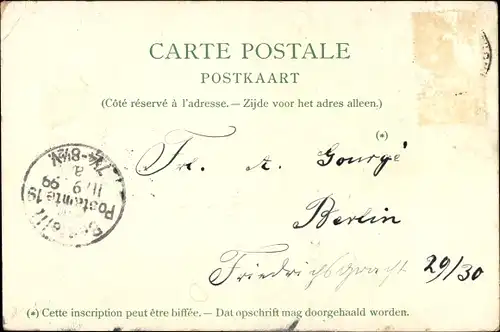 CARTE POSTALE
POSTKAART
(Côté réservé à l'adresse. — Zijde voor het adres alleen.)
(*)
Frl. A. Gourgé
Berlin
Friedrichsgracht 29/30
Berlin
Postamte 19
11/9 99
a.
7¼-8½N.
(*) Cette inscription peut être biffée. — Dat opschrift mag doorgehaald worden.